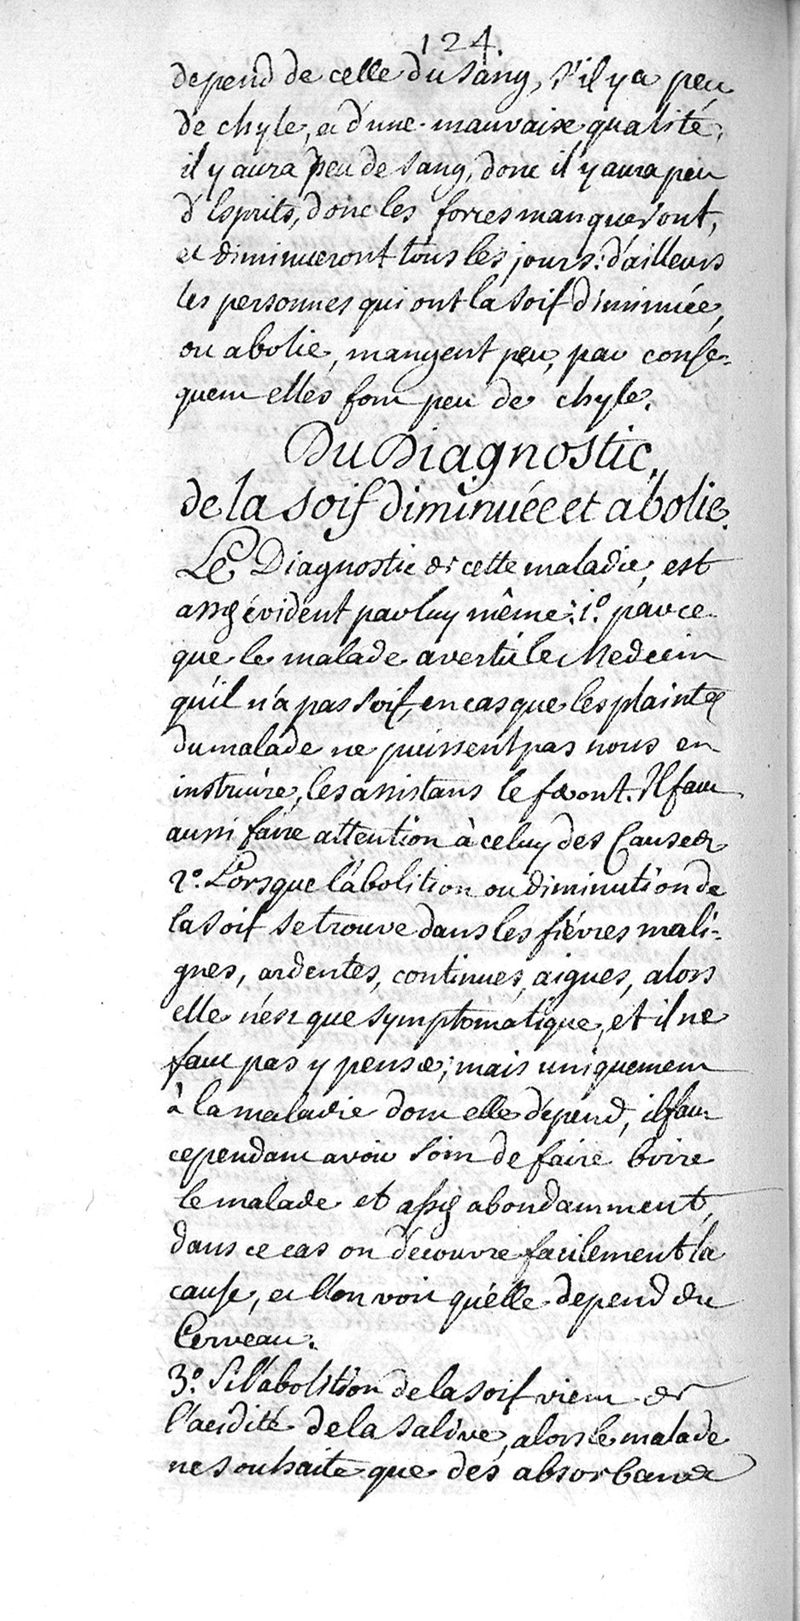 124.
depend de celle du sang, s'il y a peu
de chyle, et d'une mauvaise qualité,
il y aura peu de sang, donc il y aura peu
d'Esprits, donc les forces manqueront,
et diminueront tous les jours: d'ailleurs
les personnes qui ont la soif diminuée,
ou abolie, mangent peu, par conse-
quent elles font peu de chyle.
Du Diagnostic,
de la soif diminuée et abolie.
Le Diagnostic de cette maladie, est
assés évident par luy même: 1.º parce
que le malade avertit le Medecin
qu'il n'a pas soif, en cas que les plaintes
du malade ne puissent pas nous en
instruire, les assistans le feront. Il faut
aussi faire attention à celuy des Causes
2.º Lorsque l'abolition ou diminution de
la soif se trouve dans les fiévres mali-
gnes, ardentes, continues, aigues, alors
elle n'est que symptomatique, et il ne
faut pas y penser; mais uniquement
à la maladie dont elle dépend, il faut
cependant avoir soin de faire boire
le malade et assés abondamment,
dans ce cas on découvre facilement la
cause, et l'on voit qu'elle depend du
Cerveau.
3.º Si l'abolition de la soif vient de
l'acidité de la salive, alors le malade
ne souhaite que des absorbants